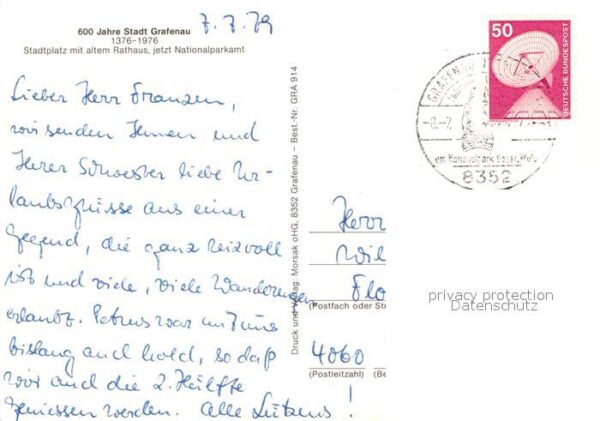 600 Jahre Stadt Grafenau
1376-1976
Stadtplatz mit altem Rathaus, jetzt Nationalparkamt
7.7.79
Lieber Herr Franzen,
wir senden Ihnen und
Ihrer Schwester liebe Ur-
laubsgrüsse aus einer
Gegend, die ganz reizvoll
ist und viele, viele Wanderungen
erlaubt. Petrus war mit uns
bislang auch hold, so daß
wir auch die 2. Hälfte
geniessen werden. Alle
Druck und Verlag: Morsak oHG, 8352 Grafenau – Best.-Nr. GRA 914
50
DEUTSCHE BUNDESPOST
GRAFENAU
8352
Herr
Wil
Flo
(Postfach oder St
4060
(Postleitzahl) (Be
privacy protection
Datenschutz